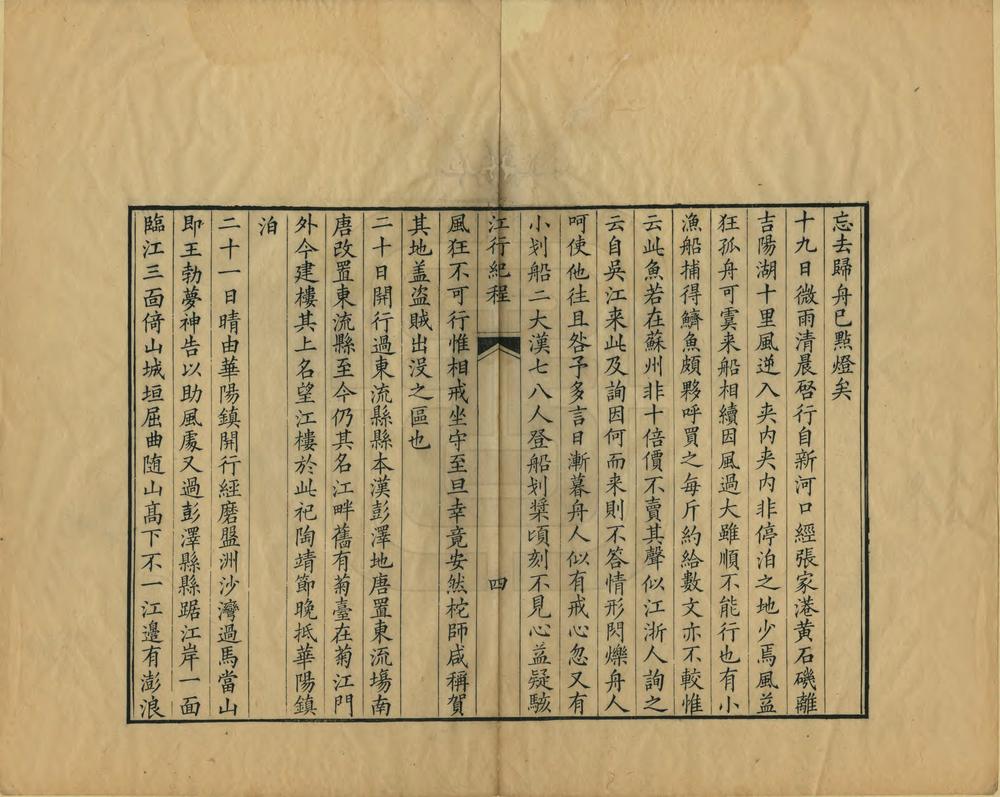 忘去歸舟已點燈矣
十九日微雨清晨啓行自新河口經張家港黃石磯離
吉陽湖十里風逆入夹内夹内非停泊之地少焉風益
狂孤舟可虞来船相續因風過大雖順不能行也有小
漁船捕得鱭魚頗夥呼買之每斤約給數文亦不較惟
云此魚若在蘇州非十倍價不賣其聲似江浙人詢之
云自吳江来此及詢因何而来則不答情形閃爍舟人
呵使他往且咎予多言日漸暮舟人似有戒心忽又有
小划船二大漢七八人登船划槳頃刻不見心益疑駭
江行紀程 四
風狂不可行惟相戒坐守至旦幸竟安然柁師咸稱賀
其地盖盜賊出没之區也
二十日開行過東流縣縣本漢彭澤地唐置東流塲南
唐改置東流縣至今仍其名江畔舊有菊臺在菊江門
外今建樓其上名望江樓於此祀陶靖節晚抵華陽鎮
泊
二十一日晴由華陽鎮開行經磨盤洲沙灣過馬當山
即王勃夢神告以助風處又過彭澤縣縣踞江岸一面
臨江三面倚山城垣屈曲随山髙下不一江邊有澎浪